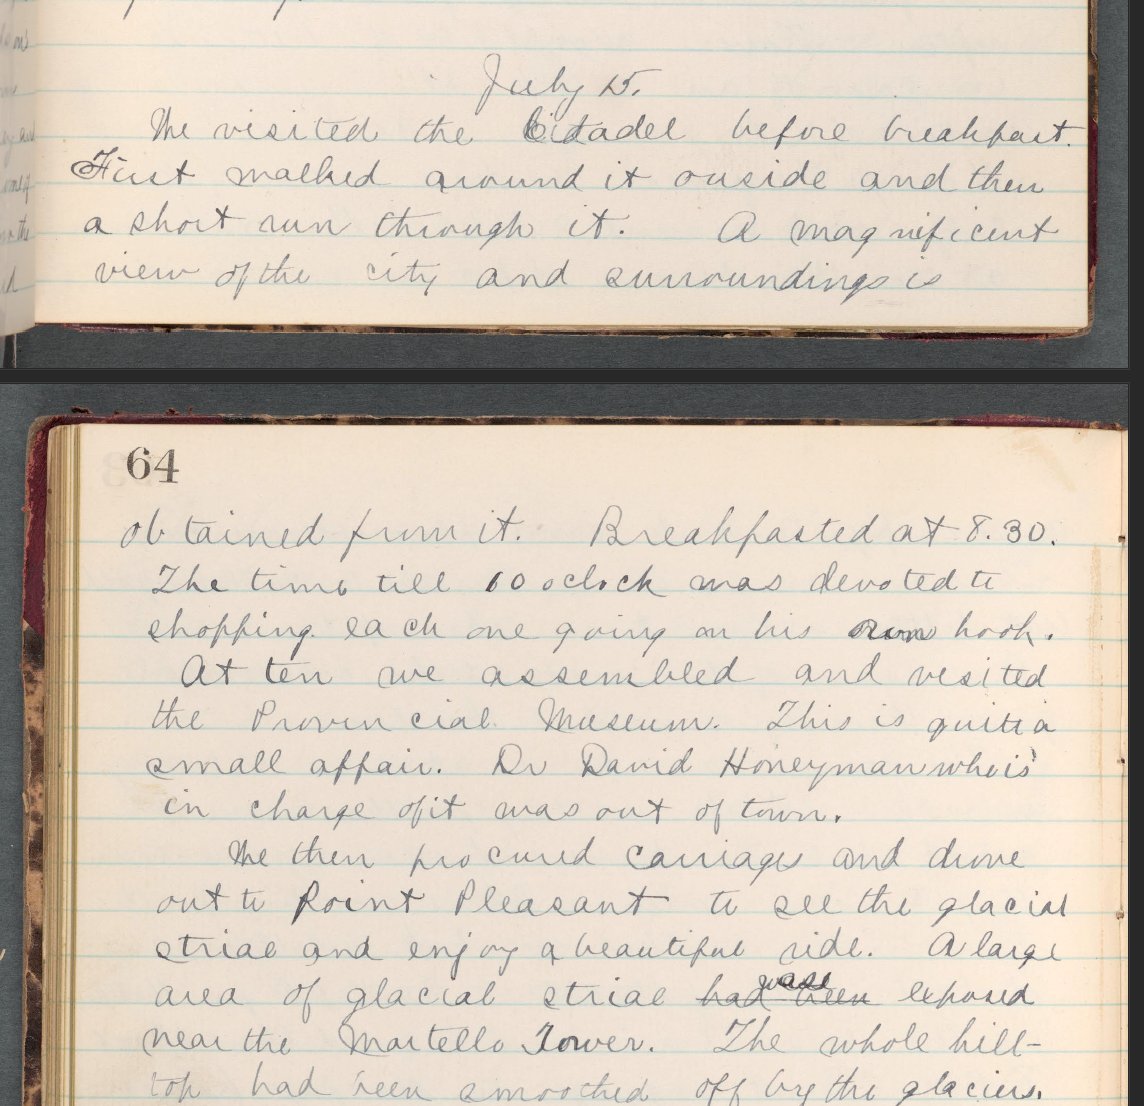 July 15.
We visited the Citadel before breakfast.
First walked around it ouside and then
a short run through it. A magnificent
view of the city and surroundings is
64
obtained from it. Breakfasted at 8.30.
The time till 10 oclock was devoted to
shopping each one going on his own hook.
At ten we assembled and visited
the Provincial Museum. This is quite a
small affair. Dr David Honeyman who is
in charge of it was out of town.
We then procured carriages and drove
out to Point Pleasant to see the glacial
striae and enjoy a beautiful ride. A large
area of glacial striae had been was exposed
near the Martello Tower. The whole hill-
top had been smoothed off by the glaciers.